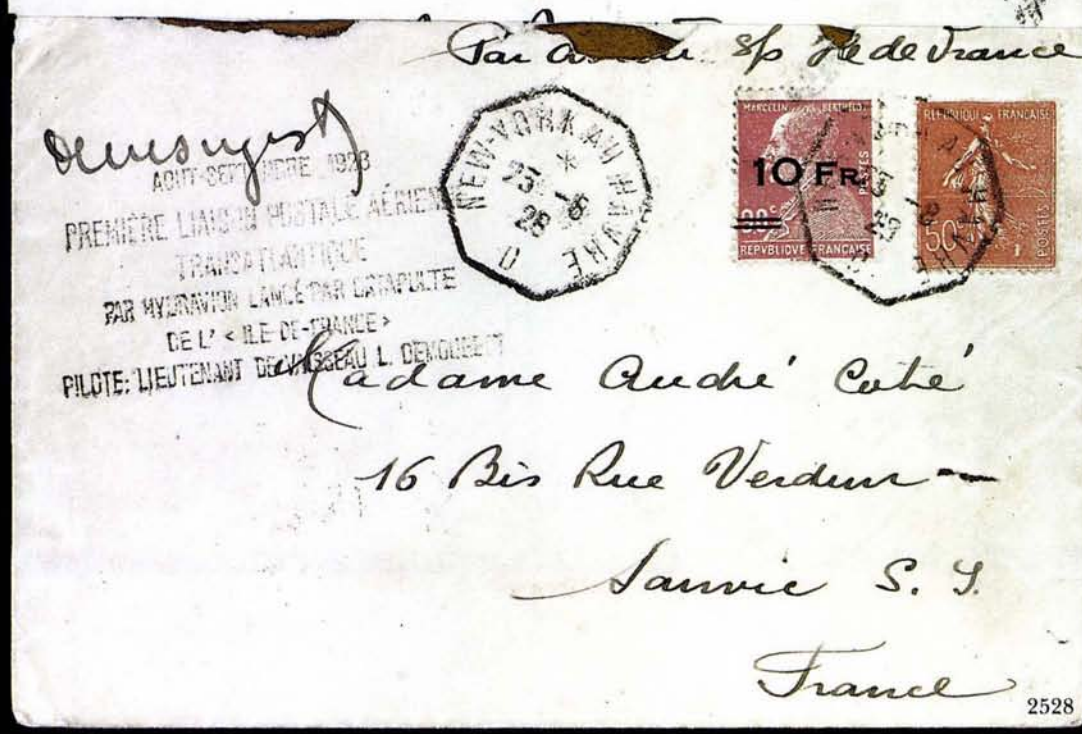 Par avion s/p Ile de France
Demougeot
AOUT-SEPTEMBRE 1928
PREMIÈRE LIAISON POSTALE AÉRIENNE
TRANSATLANTIQUE
PAR HYDRAVION LANCÉ PAR CATAPULTE
DE L' < ILE-DE-FRANCE >
PILOTE: LIEUTENANT DE VAISSEAU L. DEMOUGEOT
NEW-YORK AU HAVRE
*
23 -
28
D
MARCELIN BERTHELOT
POSTES
10 FR.
90c
REPVBLIQVE FRANCAISE
REPUBLIQUE FRANÇAISE
50c
POSTES
Madame André Coté
16 Bis Rue Verdun -
Sanvic S. I.
France
2528